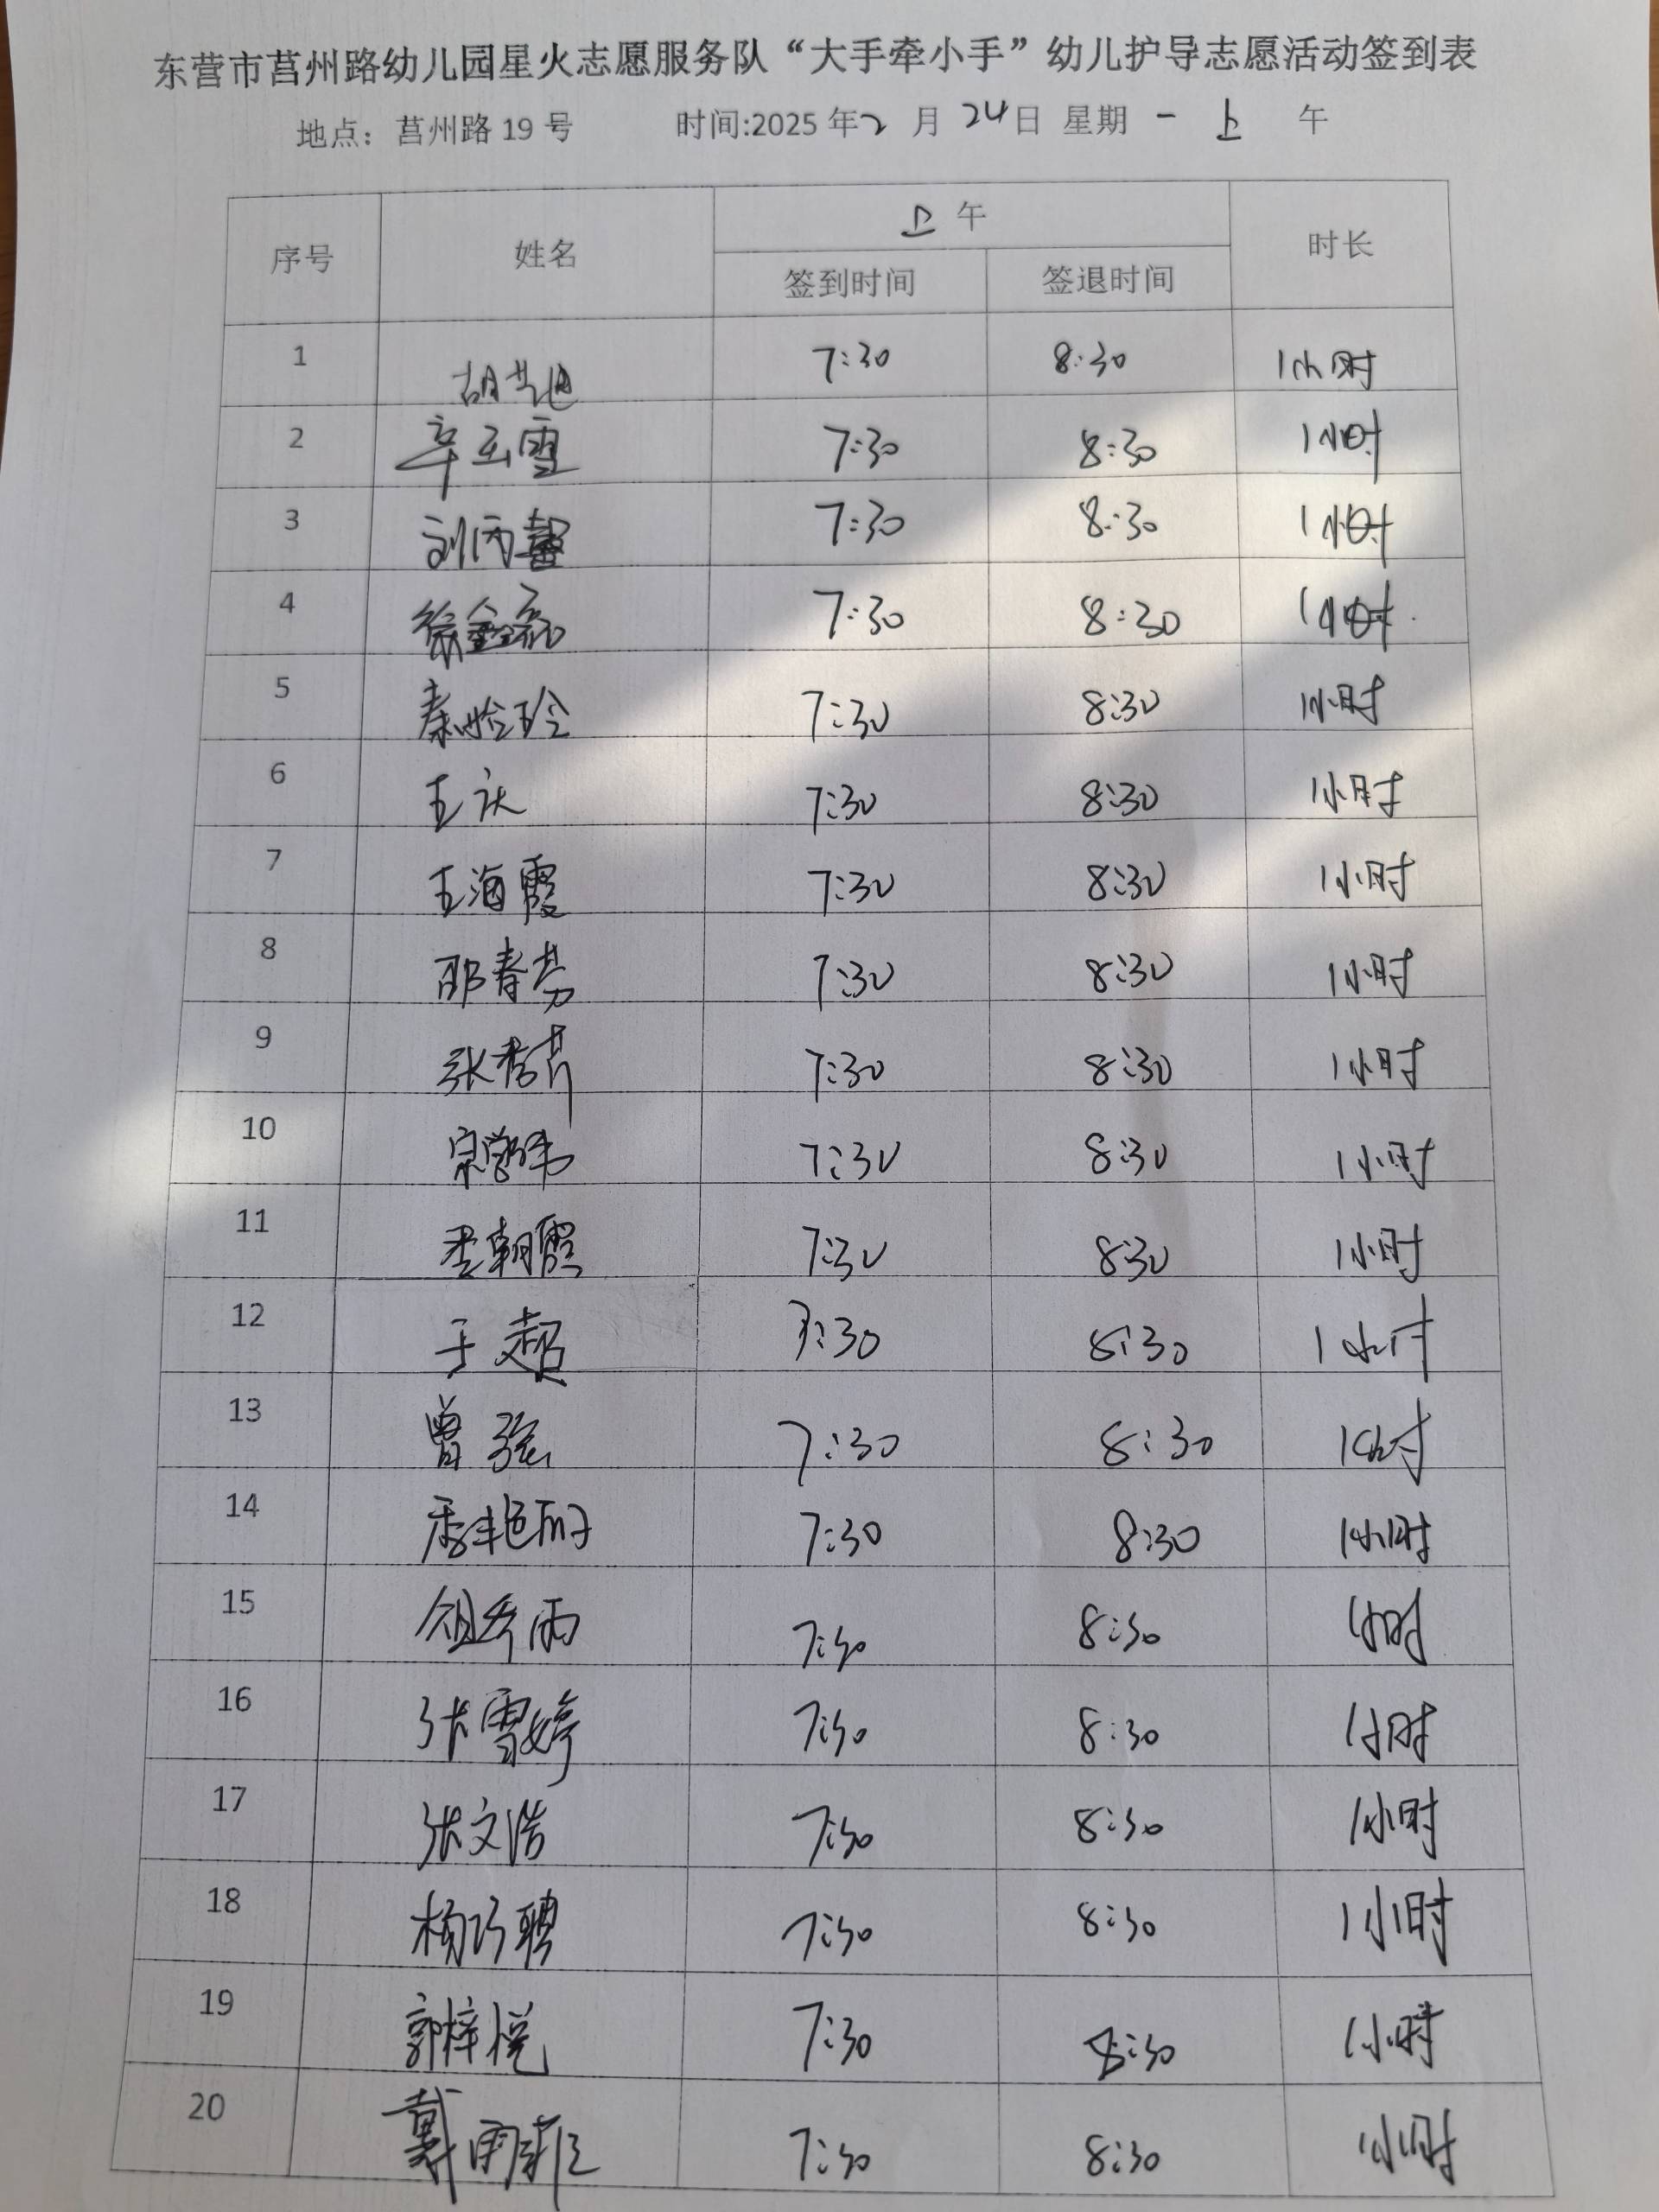 东营市莒州路幼儿园星火志愿服务队“大手牵小手”幼儿护导志愿活动签到表
地点：莒州路 19 号 时间:2025 年 2 月 24 日 星期 一 上 午
序号 姓名 上 午 时长
签到时间 签退时间
1 7:30 8:30 1小时
2 辛玉雪 7:30 8:30 1小时
3 刘雨馨 7:30 8:30 1小时
4 徐鑫 7:30 8:30 1小时
5 秦晗玲 7:30 8:30 1小时
6 王庆 7:30 8:30 1小时
7 王海霞 7:30 8:30 1小时
8 邵春芳 7:30 8:30 1小时
9 张秀芹 7:30 8:30 1小时
10 7:30 8:30 1小时
11 李朝霞 7:30 8:30 1小时
12 于超 7:30 8:30 1小时
13 曾强 7:30 8:30 1小时
14 季艳丽 7:30 8:30 1小时
15 7:30 8:30 1小时
16 张雪婷 7:30 8:30 1小时
17 张文浩 7:30 8:30 1小时
18 杨巧聘 7:30 8:30 1小时
19 郭梓悦 7:30 8:30 1小时
20 戴雨菲 7:30 8:30 1小时